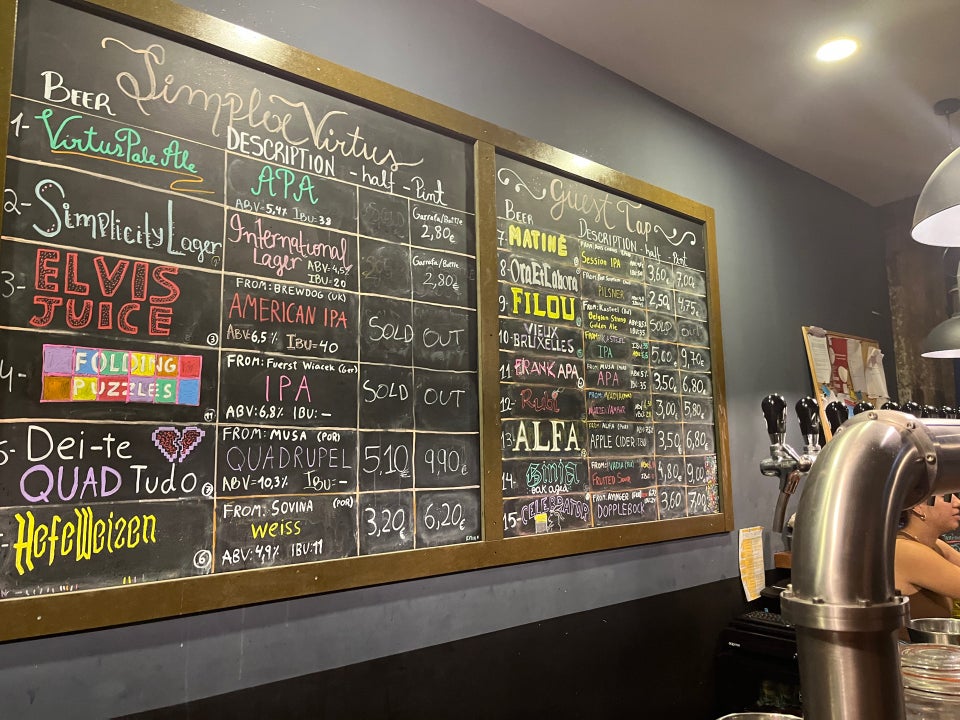 Simplex Virtus
BEER DESCRIPTION - half - Pint
1- Virtus Pale Ale APA ABV=5,4% IBU=38 SOLD Garrafa/Bottle 2,80€
2- Simplicity Lager International Lager ABV=4,5% IBU=20 Garrafa/Bottle 2,80€
3- ELVIS JUICE FROM: BREWDOG (UK) AMERICAN IPA ABV=6,5% IBU=40 SOLD OUT
4- FOLDING PUZZLES FROM: FUERST WIACEK (Ger) IPA ABV=6,8% IBU=- SOLD OUT
Dei-te QUAD Tudo FROM: MUSA (POR) QUADRUPEL ABV=10,3% IBU=- 5,10 9,90€
HefeWeizen FROM: SOVINA (POR) WEISS ABV=4,9% IBU=11 3,20€ 6,20€
Guest Tap
BEER DESCRIPTION - half - Pint
7- MATINÉ Session IPA 3,60€ 7,00€
8- Ora Et Labora PILSNER 2,50€ 4,75€
9- FILOU FROM: Kasteel Belgian Strong Golden Ale SOLD OUT
10- VIEUX BRUXELLES FROM: KASTEEL IPA 5,00€ 9,70€
11- FRANK APA FROM: MUSA (POR) APA 3,50€ 6,80€
12- 3,00€ 5,80€
13- ALFA FROM: ALFA (POR) APPLE CIDER 3,50€ 6,80€
14- FROM: VADIA (POR) FRUITED SOUR 4,80€ 9,00€
15- CELEBRATOR FROM: AYINGER DOPPLEBOCK 3,60 7,00